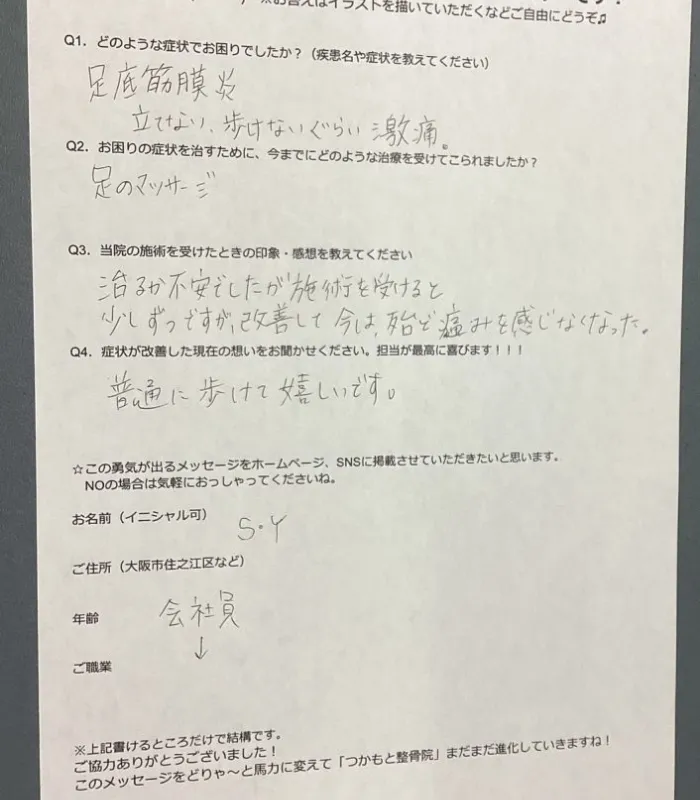 ※お答えはイラストを描いていただくなどご自由にどうぞ♫
Q1. どのような症状でお困りでしたか？（疾患名や症状を教えてください）
足底筋膜炎
立てない、歩けないぐらい激痛。
Q2. お困りの症状を治すために、今までにどのような治療を受けてこられましたか？
足のマッサージ
Q3. 当院の施術を受けたときの印象・感想を教えてください
治るか不安でしたが施術を受けると
少しずつですが、改善して今は、殆ど痛みを感じなくなった。
Q4. 症状が改善した現在の想いをお聞かせください。担当が最高に喜びます！！！
普通に歩けて嬉しいです。
☆この勇気が出るメッセージをホームページ、SNSに掲載させていただきたいと思います。
NOの場合は気軽におっしゃってくださいね。
お名前（イニシャル可） S・Y
ご住所（大阪市住之江区など）
年齢 会社員
↓
ご職業
※上記書けるところだけで結構です。
ご協力ありがとうございました！
このメッセージをどりゃ〜と馬力に変えて「つかもと整骨院」まだまだ進化していきますね！